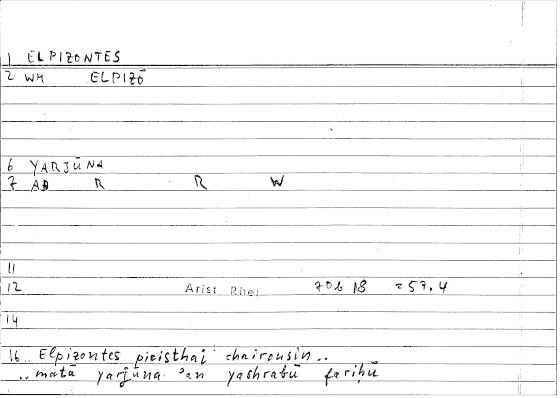 1 ELPIZONTES
2 WH ELPIZŌ
6 YARJŪNA
7 AB R R W
11
12 Arist Rhet 70b 18 = 57.4
14
16 .. Elpizontes pieisthai chairousin ..
.. matā yarjūna 'an yashrabū fariḥū